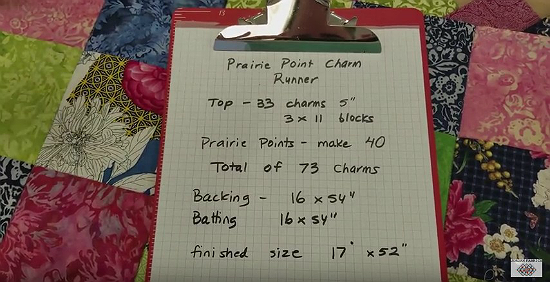 Prairie Point Charm
Runner
Top - 33 charms 5"
3 x 11 blocks
Prairie Points - make 40
Total of 73 Charms
Backing - 16 x 54"
Batting 16 x 54"
finished size 17" x 52"